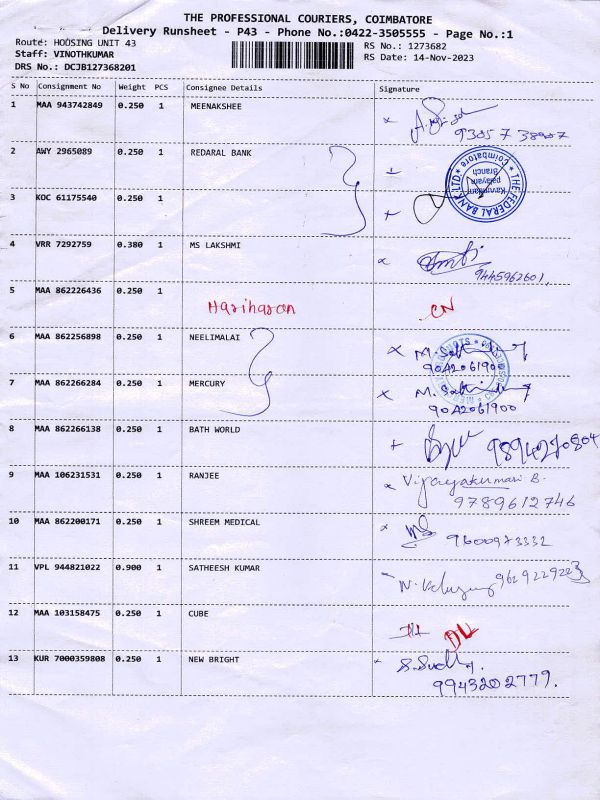 THE PROFESSIONAL COURIERS, COIMBATORE
Delivery Runsheet - P43 - Phone No.:0422-3505555 - Page No.:1
Route: HOUSING UNIT 43
RS No.: 1273682
Staff: VINOTHKUMAR
RS Date: 14-Nov-2023
DRS No.: DCJB127368201
S No Consignment No Weight PCS Consignee Details Signature
1 MAA 943742849 0.250 1 MEENAKSHEE
2 AWY 2965089 0.250 1 REDARAL BANK
THE FEDERAL BANK LTD.
Coimbatore
Branch
3 KOC 61175540 0.250 1
4 VRR 7292759 0.380 1 MS LAKSHMI
9445962601
5 MAA 862226436 0.250 1 Hariharan CN
6 MAA 862256898 0.250 1 NEELIMALAI
9042061900
7 MAA 862266284 0.250 1 MERCURY
9042061900
8 MAA 862266138 0.250 1 BATH WORLD 9894270804
9 MAA 106231531 0.250 1 RANJEE Vijayakumari B.
9789612746
10 MAA 862200171 0.250 1 SHREEM MEDICAL
9600973332
11 VPL 944821022 0.900 1 SATHEESH KUMAR 9629229223
12 MAA 103158475 0.250 1 CUBE DL
13 KUR 7000359808 0.250 1 NEW BRIGHT
9943202779.